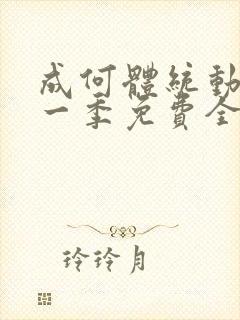 成何體統動
一季免費全
玲玲月